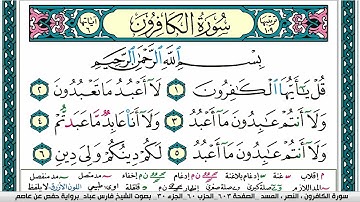 سُورَةُ الكَافِرُونَ
بِسْمِ اللَّهِ الرَّحْمَٰنِ الرَّحِيمِ
قُلْ يَا أَيُّهَا الْكَافِرُونَ ١ لَا أَعْبُدُ مَا تَعْبُدُونَ ٢
وَلَا أَنتُمْ عَابِدُونَ مَا أَعْبُدُ ٣ وَلَا أَنَا عَابِدٌ مَّا عَبَدتُّمْ ٤
وَلَا أَنتُمْ عَابِدُونَ مَا أَعْبُدُ ٥ لَكُمْ دِينُكُمْ وَلِيَ دِينِ ٦
سورة الكافرون ، النصر ، المسد الصفحة ٦٠٣ الحزب ٦٠ الجزء ٣٠ بصوت الشيخ فارس عباد برواية حفص عن عاصم